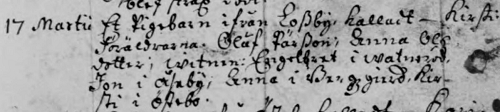 17 Martii Et Pigebarn ifrån Loßby kalladt - Kirsti
Föräldrarna. Oluf Pärßon, Anna Olß
dotter, Witnen: Engelbret i Watnerød,
Jon i Åseby, Anna i Berggård, Kir-
sti i Ødebo.